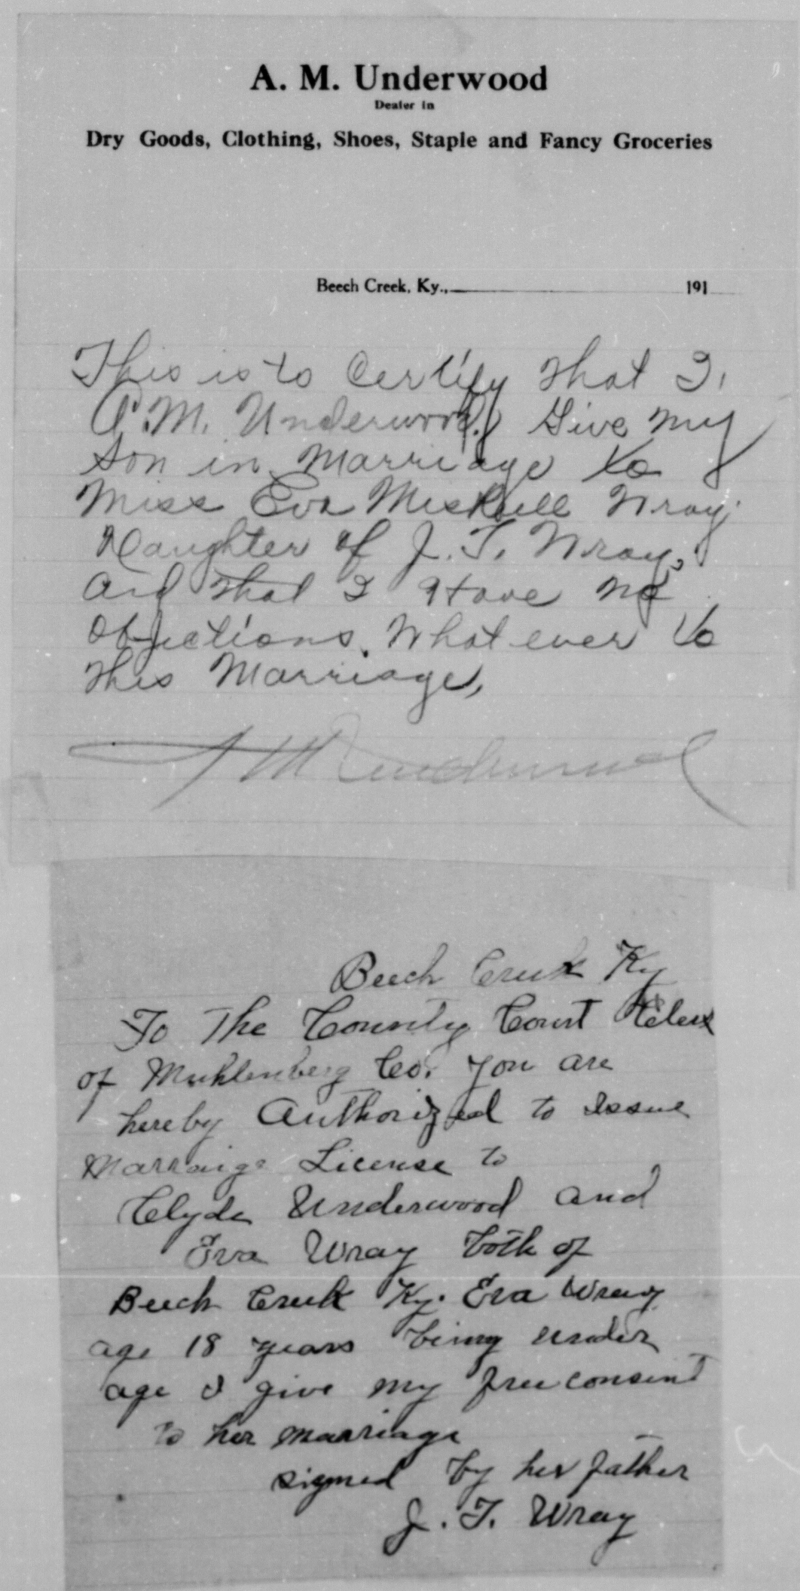 A. M. Underwood
Dealer in
Dry Goods, Clothing, Shoes, Staple and Fancy Groceries
Beech Creek, Ky., 191
This is to Certify that I,
A.M. Underwood Give my
Son in Marriage to
Miss Eva Wray.
Daughter of J. T. Wray,
and that I Have no
Objections. What ever to
this Marriage,
A M Underwood
Beech Creek Ky
To The County Court Clerk
of Muhlenberg Co. you are
hereby Authorized to Issue
Marraige License to
Clyde Underwood and
Eva Wray both of
Beech Creek Ky. Eva Wray
age 18 years being under
age I give my free consent
to her marriage
signed by her father
J. T. Wray